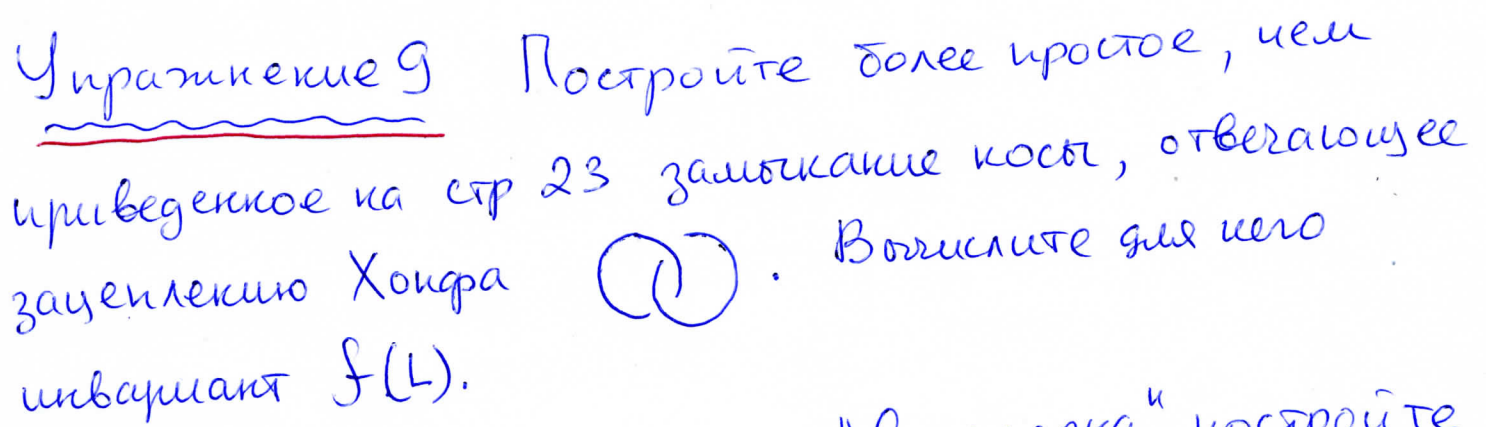 Упражнение 9 Постройте более простое, чем
приведенное на стр 23 замыкание косы, отвечающее
зацеплению Хопфа . Вычислите для него
инвариант f(L).
" постройте